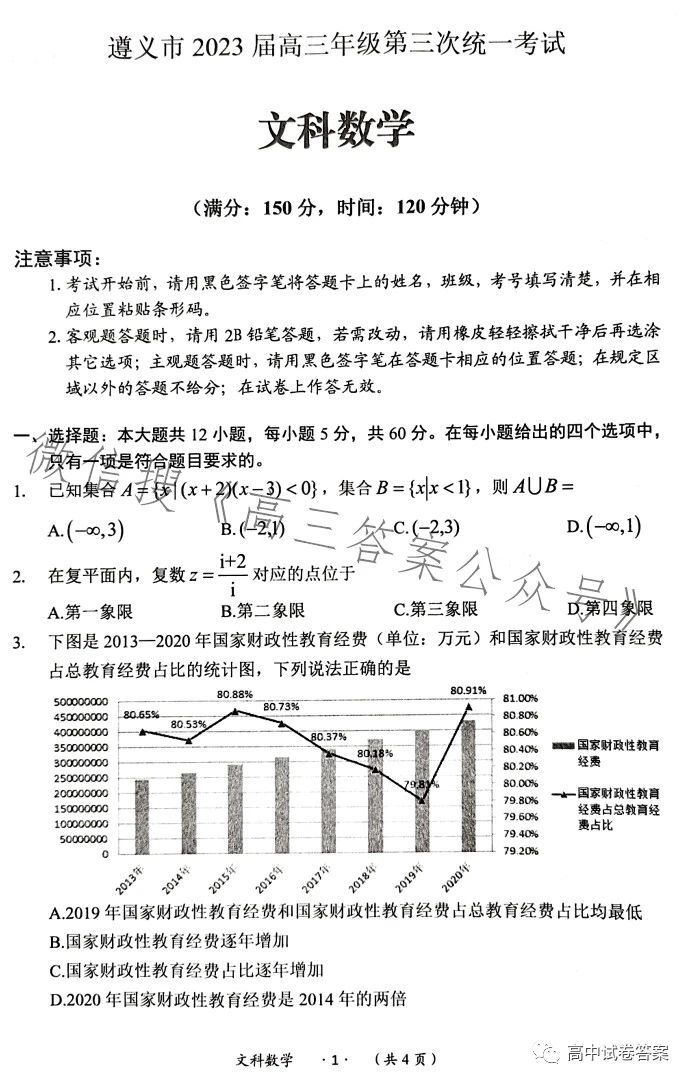 遵义市 2023 届高三年级第三次统一考试
文科数学
（满分：150 分，时间：120 分钟）
注意事项：
1. 考试开始前，请用黑色签字笔将答题卡上的姓名，班级，考号填写清楚，并在相
应位置粘贴条形码。
2. 客观题答题时，请用 2B 铅笔答题，若需改动，请用橡皮轻轻擦拭干净后再选涂
其它选项；主观题答题时，请用黑色签字笔在答题卡相应的位置答题；在规定区
域以外的答题不给分；在试卷上作答无效。
一、选择题：本大题共 12 小题，每小题 5 分，共 60 分。在每小题给出的四个选项中，
只有一项是符合题目要求的。
1. 已知集合 A={x|(x+2)(x−3)<0}，集合 B={x|x<1}，则 A∪B=
A.(−∞,3) B.(−2,1) C.(−2,3) D.(−∞,1)
2. 在复平面内，复数 z=(i+2)/i 对应的点位于
A.第一象限 B.第二象限 C.第三象限 D.第四象限
3. 下图是 2013—2020 年国家财政性教育经费（单位：万元）和国家财政性教育经费
占总教育经费占比的统计图，下列说法正确的是
500000000
450000000
400000000
350000000
300000000
250000000
200000000
150000000
100000000
50000000
0
80.65%
80.53%
80.88%
80.73%
80.37%
80.18%
79.81%
80.91%
81.00%
80.80%
80.60%
80.40%
80.20%
80.00%
79.80%
79.60%
79.40%
79.20%
2013年 2014年 2015年 2016年 2017年 2018年 2019年 2020年
国家财政性教育
经费
国家财政性教育
经费占总教育经
费占比
A.2019 年国家财政性教育经费和国家财政性教育经费占总教育经费占比均最低
B.国家财政性教育经费逐年增加
C.国家财政性教育经费占比逐年增加
D.2020 年国家财政性教育经费是 2014 年的两倍
文科数学 ·1· （共 4 页）
微信搜《高三答案公众号》
高中试卷答案